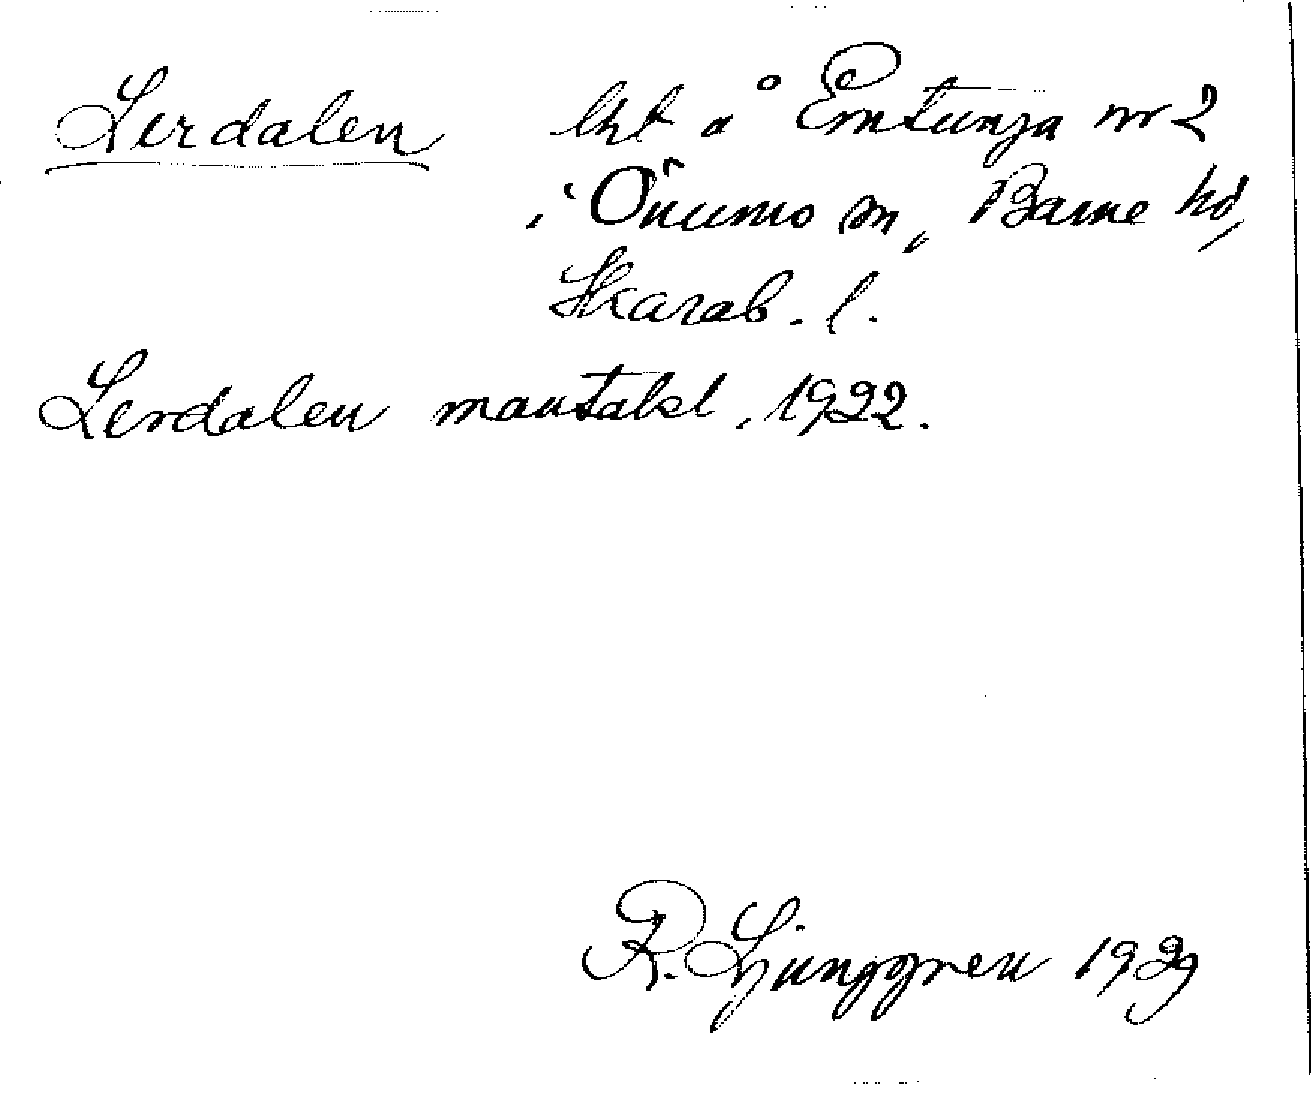 Lerdalen lht å Emtunga nr 2
i Önums sn, Barne hd,
Skarab. l.
Lerdalen mantalsl. 1922.
R. Ljunggren 1929